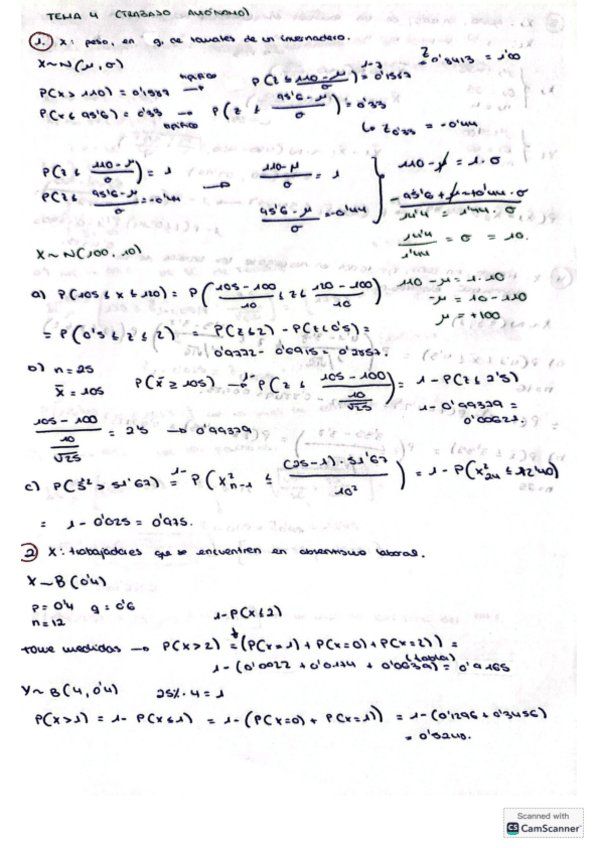 TEMA 4 (TRABAJO AUTÓNOMO)
1. X: peso, en g, de tomates de un invernadero.
X∼N(μ, σ)
P(X > 110) = 0'1587 → P(Z ≤ (110-μ)/σ) = 0'1587 1- Z 0'8413 = 1'00
P(X ≤ 95'6) = 0'33 → P(Z ≤ (95'6-μ)/σ) = 0'33
↳ Z0'33 = -0'44
P(Z ≤ (110-μ)/σ) = 1 → (110-μ)/σ = 1 110-μ = 1·σ
P(Z ≤ (95'6-μ)/σ) = -0'44 (95'6-μ)/σ = -0'44 -95'6+μ = +0'44·σ
14'4 = 1'44·σ
14'4/1'44 = σ = 10.
X∼N(100, 10)
a) P(105 ≤ X ≤ 120) = P((105-100)/10 ≤ Z ≤ (120-100)/10) 110-μ = 1·10
-μ = 10-110
μ = +100
= P(0'5 ≤ Z ≤ 2) = P(Z≤2) - P(Z≤0'5) =
0'9772 - 0'6915 = 0'2857.
b) n = 25
x̄ = 105 P(x̄ ≥ 105) → 1- P(Z ≤ (105-100)/(10/√25)) = 1-P(Z≤2'5)
1-0'99379 =
0'00621.
(105-100)/(10/√25) = 2'5 → 0'99379
c) P(S² > 51'67) = 1- P(X²n-1 ≤ (25-1)·51'67/10²) = 1-P(X²24 ≤ 12'40)
= 1-0'025 = 0'975.
2) X: trabajadores que se encuentren en absentismo laboral.
X∼B(0'4)
p = 0'4 q = 0'6
n = 12 1-P(X≤2)
tome medidas → P(X>2) = (P(X=1)+P(X=0)+P(X=2)) =
(tabla)
1-(0'0022 + 0'0174 + 0'0639) = 0'9165
Y∼B(4,0'4) 25%·4 = 1
P(X>1) = 1-P(X≤1) = 1-(P(X=0)+P(X=1)) = 1-(0'1296+0'3456)
= 0'5248.
Scanned with
CS CamScanner